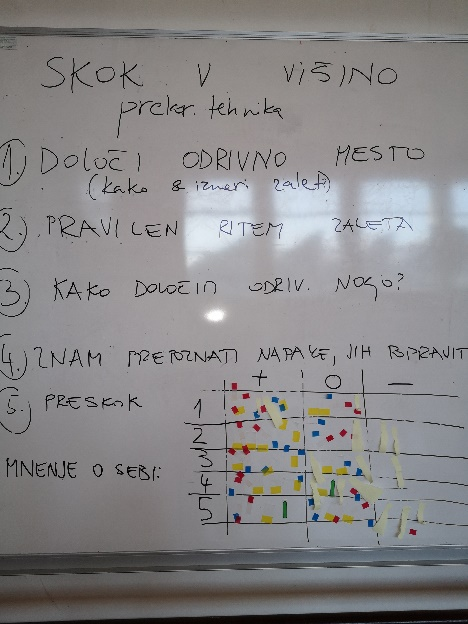 SKOK V VIŠINO
prekr. tehnika
1. DOLOČI ODRIVNO MESTO
(kako si izmeri zalet)
2. PRAVILEN RITEM ZALETA
3 KAKO DOLOČIM ODRIV. NOGO?
4. ZNAM PREPOZNATI NAPAKE, JIH POPRAVITI
5. PRESKOK
MNENJE O SEBI:
+ O —
1
2
3
4
5